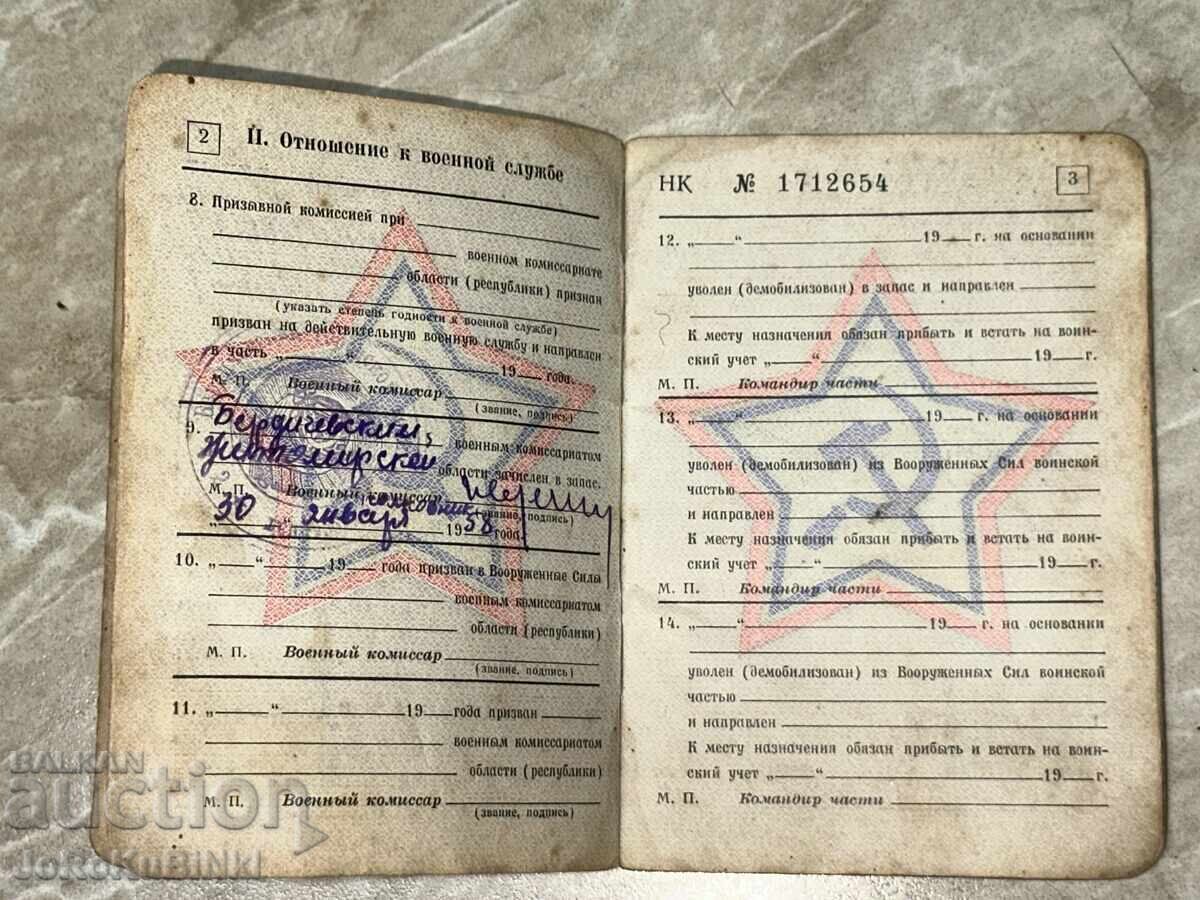 2
II. Отношение к военной службе
8. Призывной комиссией при
военном комиссариате
области (республики) признан
(указать степень годности к военной службе)
призван на действительную военную службу и направлен
в часть „ “ 19 года.
М. П. Военный комиссар
(звание, подпись)
9. Бердичевским, военным комиссариатом
Житомирской области зачислен в запас.
М. П. Военный комиссар
(звание, подпись)
„30“ января 1958 года.
10. „ “ 19 года призван в Вооруженные Силы
военным комиссариатом
области (республики)
М. П. Военный комиссар
(звание, подпись)
11. „ “ 19 года призван
военным комиссариатом
области (республики)
М. П. Военный комиссар
(звание, подпись)
НК № 1712654
3
12. „ “ 19 г. на основании
уволен (демобилизован) в запас и направлен
К месту назначения обязан прибыть и встать на воин-
ский учет „ “ 19 г.
М. П. Командир части
13. „ “ 19 г. на основании
уволен (демобилизован) из Вооруженных Сил воинской
частью
и направлен
К месту назначения обязан прибыть и встать на воин-
ский учет „ “ 19 г.
М. П. Командир части
14. „ “ 19 г. на основании
уволен (демобилизован) из Вооруженных Сил воинской
частью
и направлен
К месту назначения обязан прибыть и встать на воин-
ский учет „ “ 19 г.
М. П. Командир части
BALKAN
auction
JoRoKnBINKI